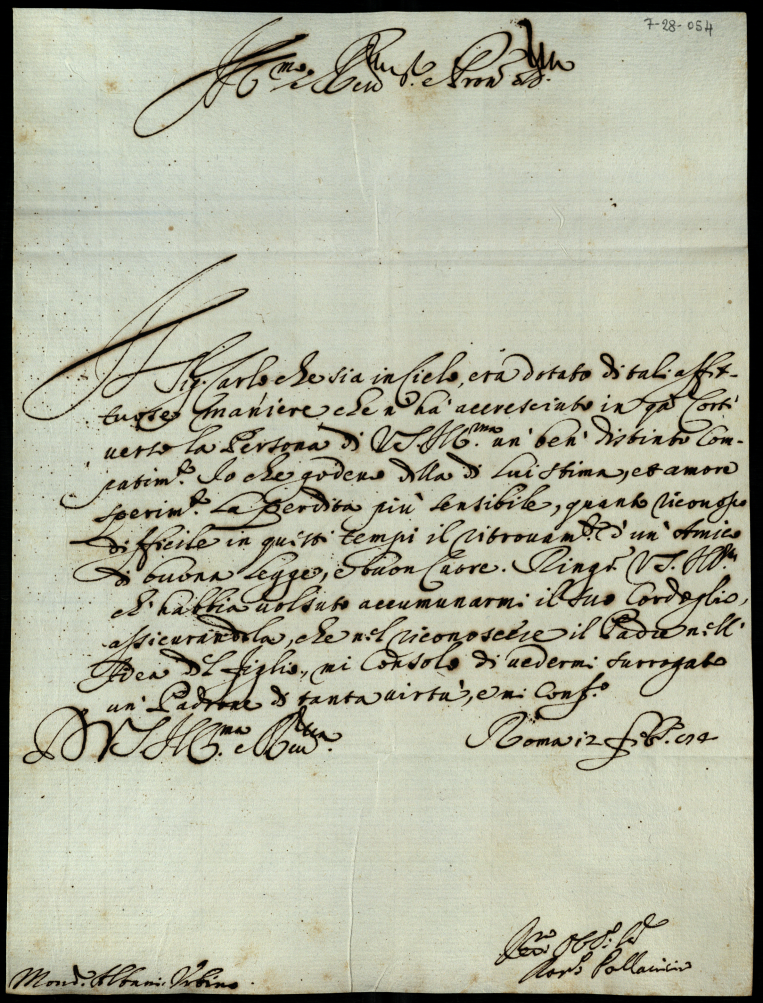 7-28-054
Ill.mo e Rev.mo Sig.r e Pron
Il Sig. Carlo che sia in Cielo, era dotato di tali affet-
tuose maniere che n'ha accresciuto in q.a Corte
verso la Persona di V.S. Ill.ma un' ben' distinto Com-
patim.to. Io che godevo della di lui stima, et amore
sperim.to la perdita più sensibile, quanto riconosco
difficile in questi tempi il ritrovam.to d'un' Amico
di buona legge, e buon Cuore. Ringr.o V.S. Ill.ma
ch' habbia voluto accumunarmi il suo Cordoglio,
assicurandola, che nel riconoscere il Padre nell'
Idea del figlio, mi Consolo di vedermi surrogato
un' Padrone di tanta virtù, e mi Conf.o
D V.S. Ill.ma e Rev.ma Roma 12 Feb.
Pallavicini
Mons.r Albani Urbino.